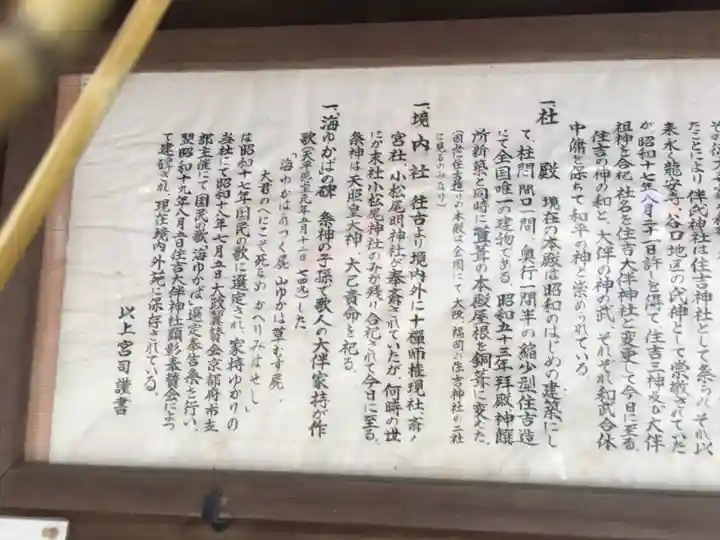 たことにより伴氏神社は住吉神社として祭られ、それ以
来永く龍安寺、谷口地区の氏神として崇敬されていた
が昭和十七年八月二十一日許しを得て、住吉三神及び大伴
祖神を合祀、社名を住吉大伴神社と変更して今日に至る。
住吉の神の和と、大伴の神の武、それぞれ和武合体
中備を保ちて和平の神と崇められている
一、社 殿 現在の本殿は昭和のはじめの建築にし
て、柱間、間口一間、奥行一間半の縮少型住吉造
にて全国唯一の建物である。昭和五十三年拝殿神饌
所新築と同時に葺の本殿屋根を銅葺に変えた。
(因に住吉造りの本殿は全国にて大阪、福岡の住吉神社の二社
に見るのみなり)
一、境 内 社 往古より境内外に十禅師権現社、斎ノ
宮社、小松尾明神社が奉斎されていたが、何時の世
にか末社小松尾神社のみが残り合祀されて今日に至る。
祭神は天照皇大神、大己貴命を祀る。
一、海ゆかばの碑 祭神の子孫で歌人の大伴家持が作
歌(天平感宝元年五月十二日 七四九)した
「海ゆかばみつく屍、山ゆかば草むす屍、
大君のへにこそ死なめ かへりみはせじ」
は昭和十七年国民の歌に選定され、家持ゆかりの
当社にて昭和十八年七月五日大政翼賛会京都府市支
部主催にて国民の歌「海ゆかば」選定奉告祭を行い、
翌昭和十九年八月六日住吉大伴神社顕彰奉賛会によっ
て建碑され、現在境内外苑に保存されている。
以上宮司謹書